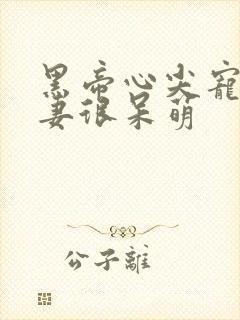 黑帝心尖寵
妻很呆萌
公子離